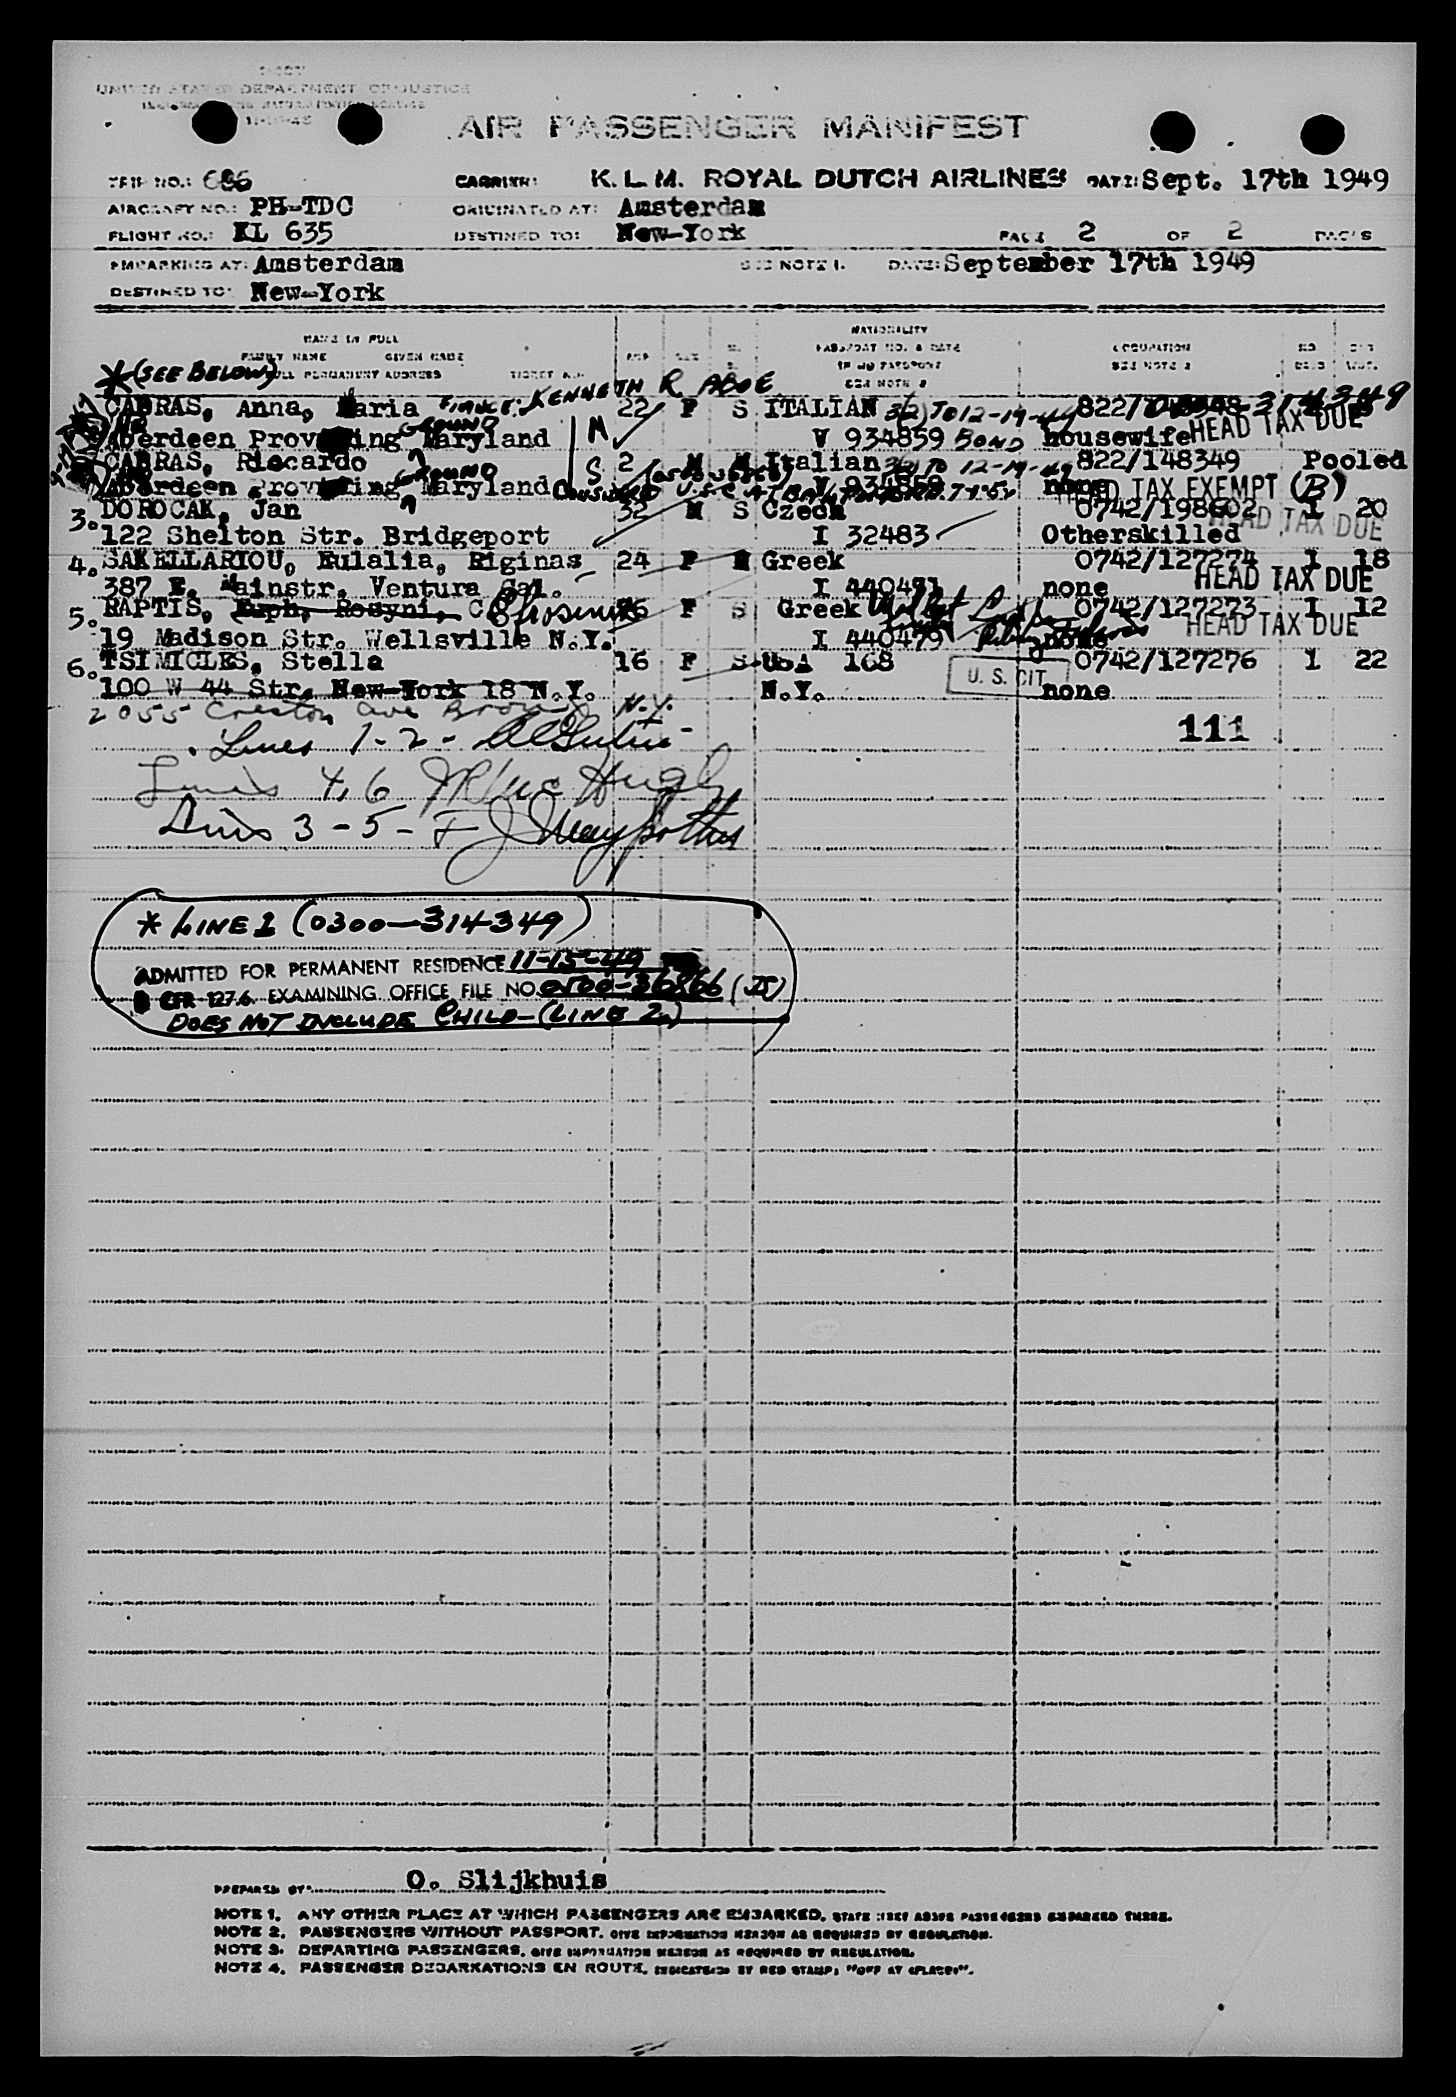 UNITED STATES DEPARTMENT OF JUSTICE
AIR PASSENGER MANIFEST
TRIP NO.: 686 CARRIER: K.L.M. ROYAL DUTCH AIRLINES DATE: Sept. 17th 1949
AIRCRAFT NO.: PH-TDC ORIGINATED AT: Amsterdam
FLIGHT NO.: KL 635 DESTINED TO: New-York PAGE 2 OF 2 PAGES
EMBARKING AT: Amsterdam SEE NOTE 1. DATE: September 17th 1949
DESTINED TO: New-York
NAME IN FULL NATIONALITY
FAMILY NAME GIVEN NAME AGE SEX PASSPORT NO. & DATE OCCUPATION NO.
FULL PERMANENT ADDRESS TICKET NO. IF NO PASSPORT SEE NOTE 3
SEE NOTE 2
* (SEE BELOW)
FIANCE: KENNETH R ABDE
CABRAS, Anna, Maria 22 F S ITALIAN 3(2) TO 12-19-49 822/148348 314349
Aberdeen Proving GROUND Maryland M V 934859 BOND housewife HEAD TAX DUE
CABRAS, Riccardo 2 M Italian 3(2) TO 12-19-49 822/148349 Pooled
Aberdeen Proving GROUND Maryland S V 934859 none HEAD TAX EXEMPT (B)
3. DOROCAK, Jan 32 M S Czech 0742/198602 1 20
122 Shelton Str. Bridgeport I 32483 Otherskilled HEAD TAX DUE
4. SAKELLARIOU, Eulalia, Riginas 24 F M Greek 0742/127274 1 18
387 E. Mainstr. Ventura Cal. I 440481 none HEAD TAX DUE
5. RAPTIS, Euph, Rosyni, C. F S Greek 0742/127273 1 12
19 Madison Str. Wellsville N.Y. I 440479 none HEAD TAX DUE
6. TSIMICLES, Stella 16 F S USA 168 0742/127276 1 22
100 W 44 Str. New-York 18 N.Y. N.Y. U.S. CIT. none
2055 Creston Ave Bronx N.Y.
111
Lines 1-2-
Lines 4, 6
Lines 3-5-
* LINE 1 (0300-314349)
ADMITTED FOR PERMANENT RESIDENCE 11-15-49
8 CFR 127.6. EXAMINING OFFICE FILE NO. 0500-36866
DOES NOT INCLUDE CHILD-(LINE 2)
PREPARED BY: O. Slijkhuis
NOTE 1. ANY OTHER PLACE AT WHICH PASSENGERS ARE EMBARKED. STATE HERE ABOVE PASSENGERS EMBARKED THERE.
NOTE 2. PASSENGERS WITHOUT PASSPORT. GIVE INFORMATION HEREON AS REQUIRED BY REGULATION.
NOTE 3. DEPARTING PASSENGERS. GIVE INFORMATION HEREON AS REQUIRED BY REGULATION.
NOTE 4. PASSENGER DEBARKATIONS EN ROUTE. INDICATE BY RED STAMP: "OFF AT (PLACE)".